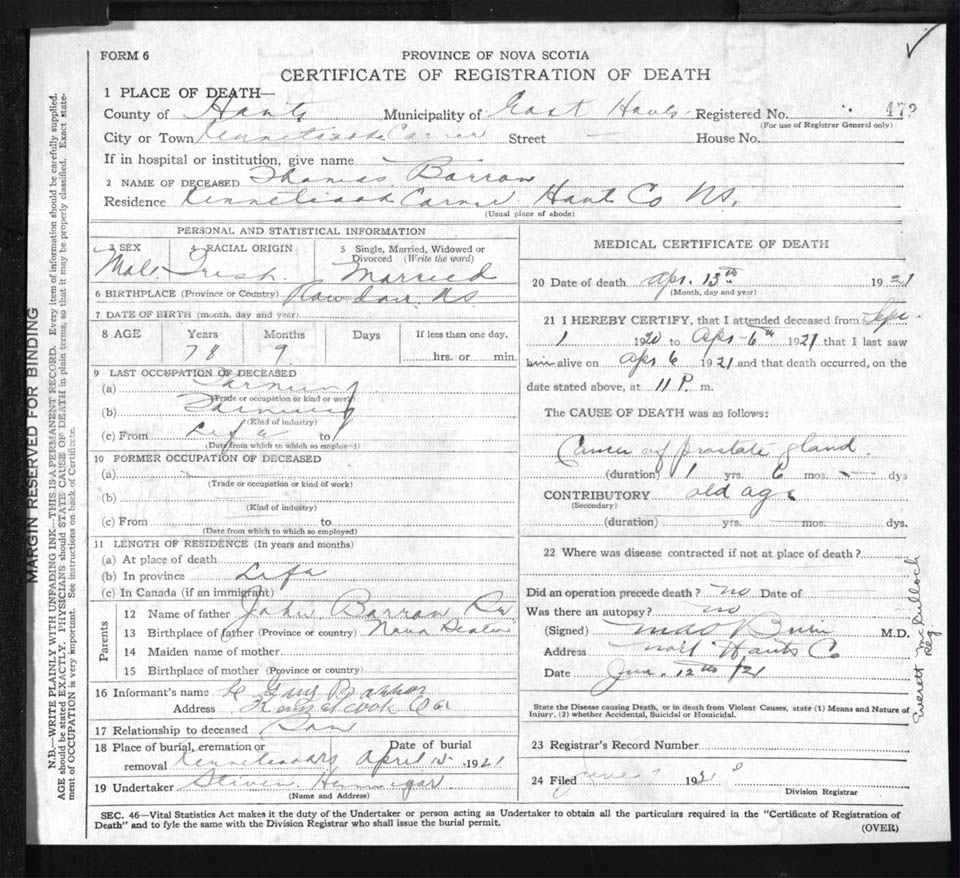 FORM 6
PROVINCE OF NOVA SCOTIA
CERTIFICATE OF REGISTRATION OF DEATH
1 PLACE OF DEATH—
County of Hants Municipality of East Hants Registered No. 473
(For use of Registrar General only)
City or Town Corner Street — House No.
If in hospital or institution, give name
2 NAME OF DECEASED Thomas Barron
Residence Corner Hant Co NS.
(Usual place of abode)
PERSONAL AND STATISTICAL INFORMATION
3 SEX 4 RACIAL ORIGIN 5 Single, Married, Widowed or Divorced (Write the word)
Male Irish. Married
6 BIRTHPLACE (Province or Country) Rawdon, NS
7 DATE OF BIRTH (month, day and year)
8 AGE Years Months Days If less than one day,
78 9 hrs. or min.
9 LAST OCCUPATION OF DECEASED
(a) Farming
(Trade or occupation or kind of work)
(b) Farming
(Kind of industry)
(c) From Life to
(Date from which to which so employed)
10 FORMER OCCUPATION OF DECEASED
(a)
(Trade or occupation or kind of work)
(b)
(Kind of industry)
(c) From to
(Date from which to which so employed)
11 LENGTH OF RESIDENCE (In years and months)
(a) At place of death
(b) In province Life
(c) In Canada (if an immigrant)
Parents
12 Name of father John Barron
13 Birthplace of father (Province or country) Nova Scotia
14 Maiden name of mother
15 Birthplace of mother (Province or country)
16 Informant's name
Address Kennetcook Cor
17 Relationship to deceased Son
18 Place of burial, cremation or removal Date of burial April 15 1921
19 Undertaker Hennigar
(Name and Address)
MEDICAL CERTIFICATE OF DEATH
20 Date of death Apr. 13th 1921
(Month, day and year)
21 I HEREBY CERTIFY, that I attended deceased from Sept
1 1920 to Apr 6th 1921 that I last saw
him alive on Apr 6 1921 and that death occurred, on the
date stated above, at 11 P. m.
The CAUSE OF DEATH was as follows:
Cancer of prostate gland.
(duration) 1 yrs. 6 mos. — dys
CONTRIBUTORY old age
(Secondary)
(duration) yrs. mos. dys.
22 Where was disease contracted if not at place of death?
Did an operation precede death? no Date of
Was there an autopsy? no
(Signed) M.D.
Address Hants Co
Date 12th /21
State the Disease causing Death, or in death from Violent Causes, state (1) Means and Nature of
Injury, (2) whether Accidental, Suicidal or Homicidal.
23 Registrar's Record Number
24 Filed June 1921
Division Registrar
Everett McCulloch
Reg
SEC. 46—Vital Statistics Act makes it the duty of the Undertaker or person acting as Undertaker to obtain all the particulars required in the "Certificate of Registration of
Death" and to fyle the same with the Division Registrar who shall issue the burial permit.
(OVER)
MARGIN RESERVED FOR BINDING
N.B.—WRITE PLAINLY WITH UNFADING INK—THIS IS A PERMANENT RECORD. Every item of information should be carefully supplied.
AGE should be stated EXACTLY. PHYSICIANS should STATE CAUSE OF DEATH in plain terms, so that it may be properly classified. Exact state-
ment of OCCUPATION is very important. See instructions on back of Certificate.